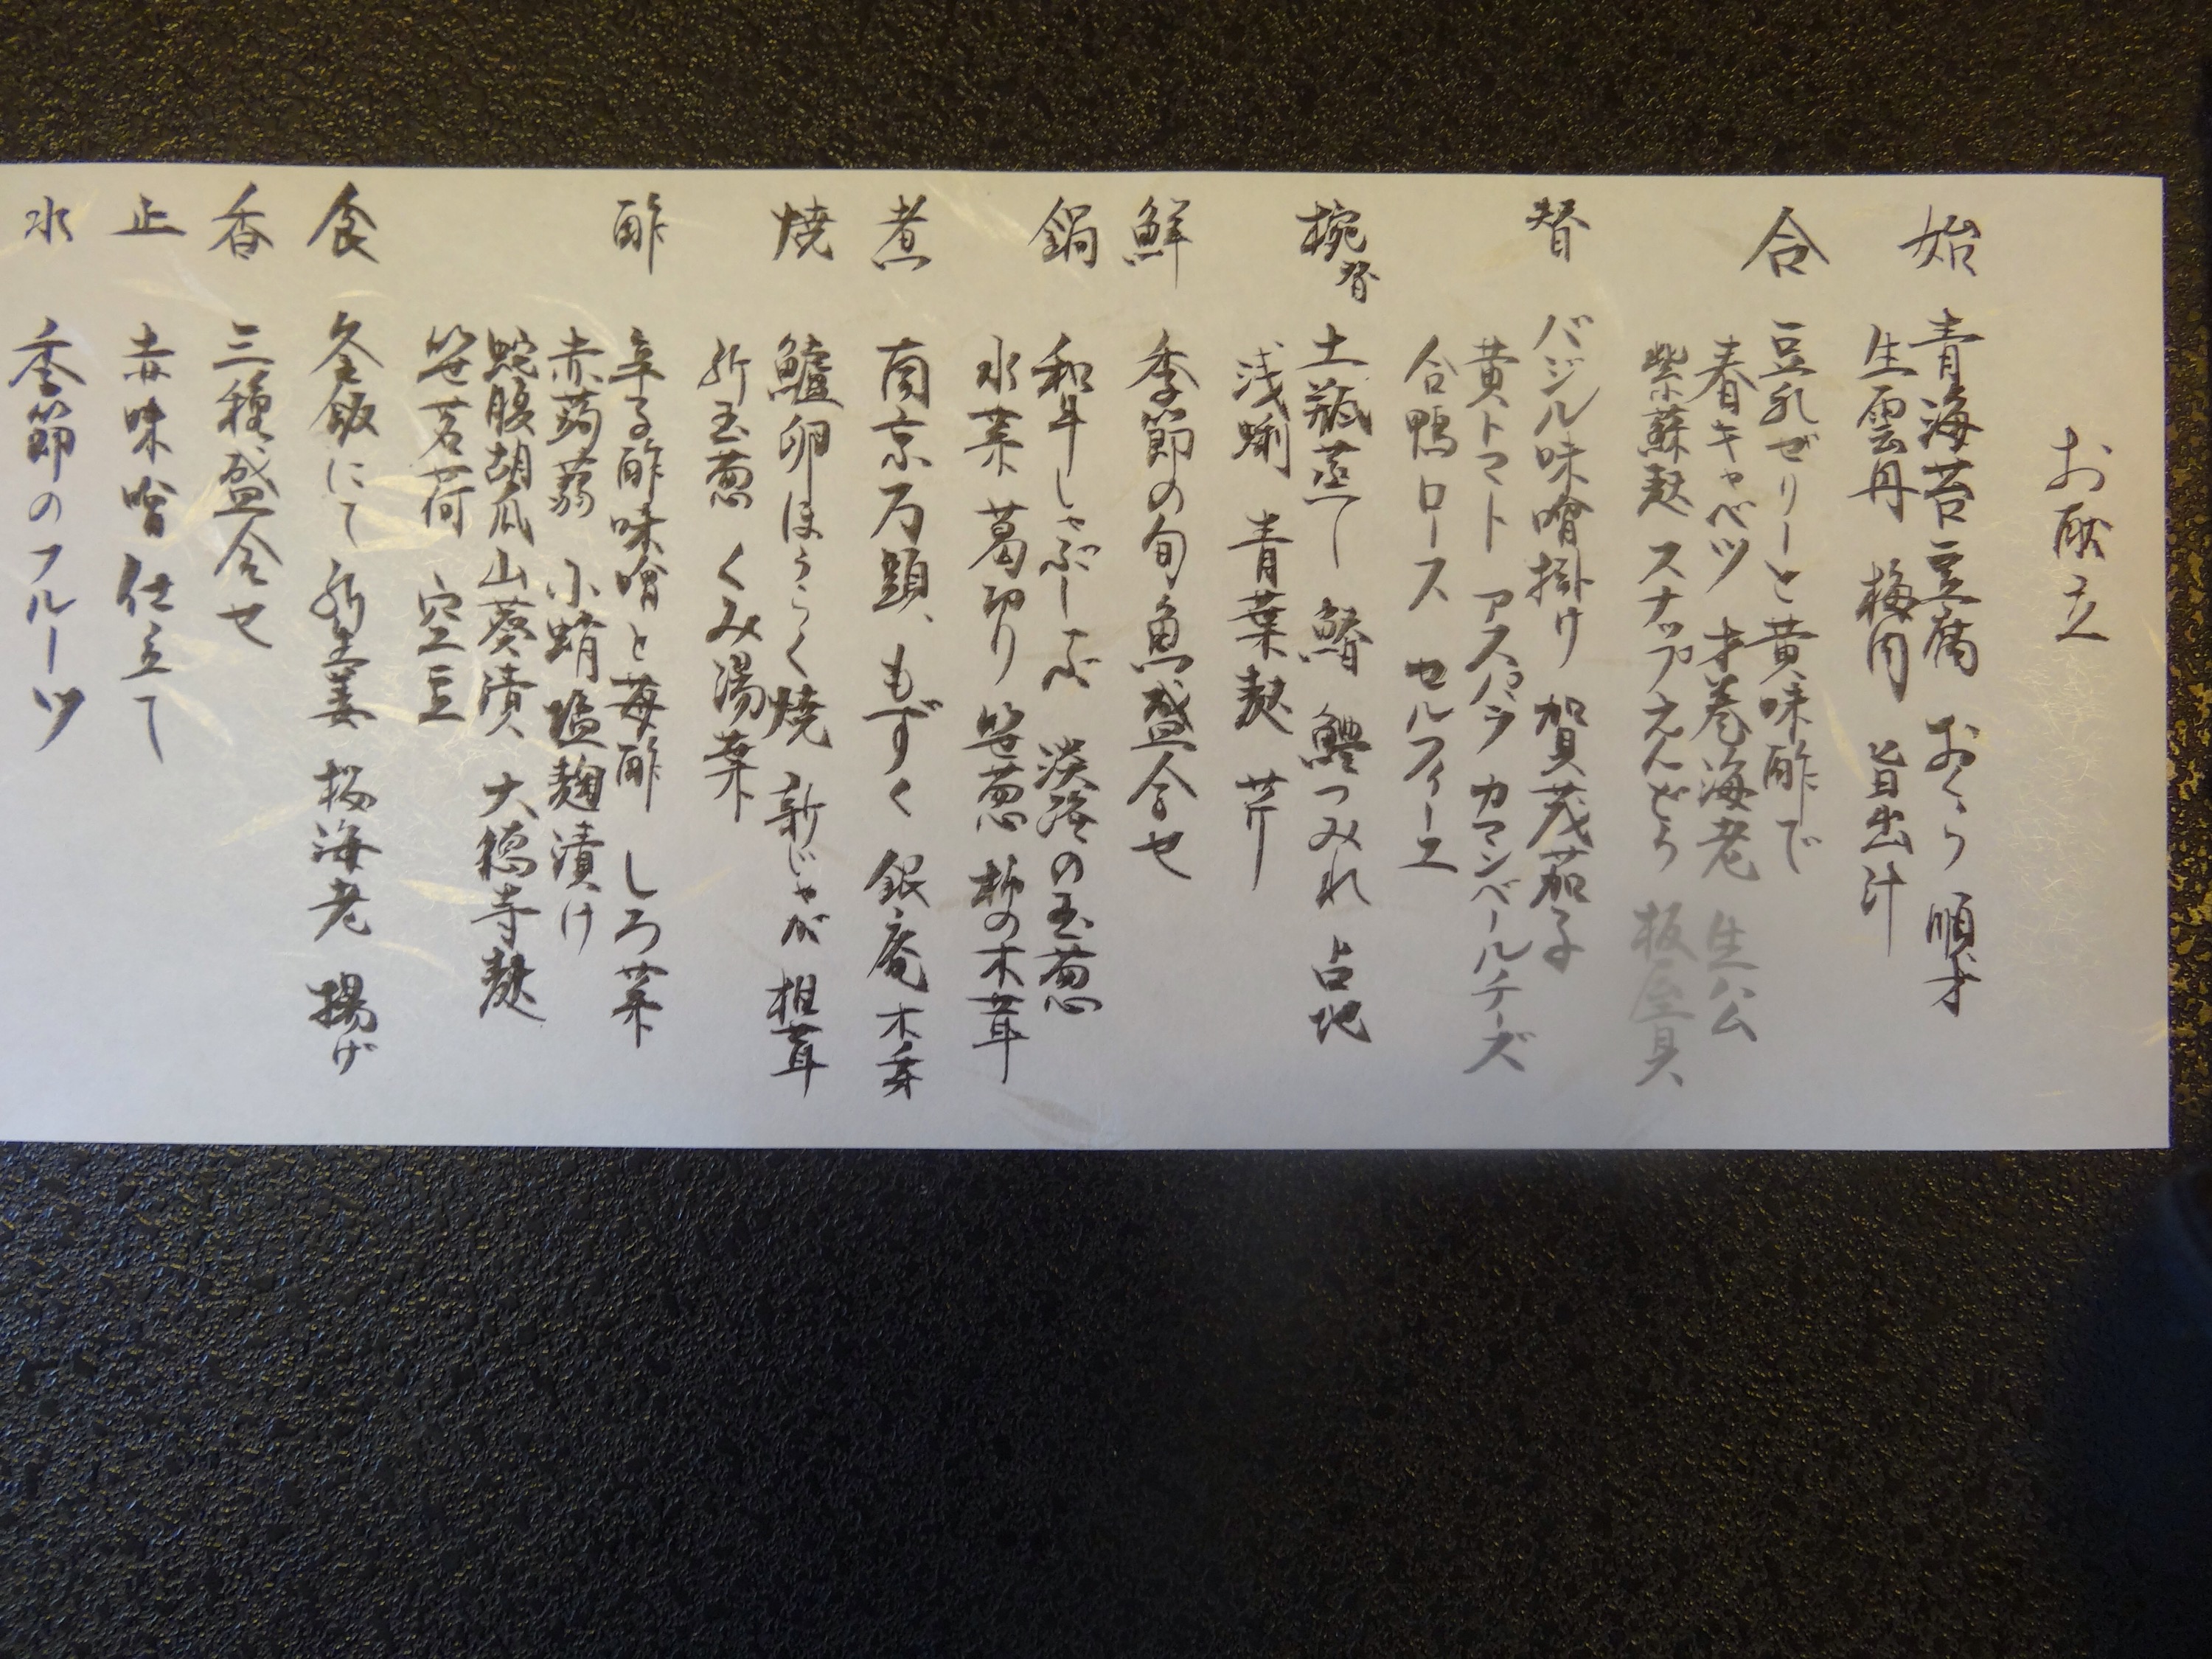 お献立
始 青海苔豆腐 おくら 順才
生雲丹 梅肉 旨出汁
合 豆乳ゼリーと黄味酢で
春キャベツ 才巻海老 生ハム
紫蘇麸 スナップえんどう 板屋貝
替 バジル味噌掛け 賀茂茄子
黄トマト アスパラ カマンベールチーズ
合鴨ロース セルフィーユ
椀替 土瓶蒸し 鰆 鱧つみれ 占地
浅蜊 青葉麸 芹
鮮 季節の旬魚盛合せ
鍋 和牛しゃぶしゃぶ 淡路の玉葱
水菜 葛切り 笹葱 柳の木茸
煮 南京万頭、もずく 銀庵 木ノ芽
焼 鱸卵ほうらく焼 新じゃが 椎茸
新玉葱 くみ湯葉
酢 辛子酢味噌と苺酢 しろ菜
赤蒟蒻 小蛸塩麹漬け
蛇腹胡瓜山葵漬 大徳寺麸
笹茗荷 空豆
食 釜飯にて 新生姜 桜海老 揚げ
香 三種盛合せ
止 赤味噌仕立て
水 季節のフルーツ